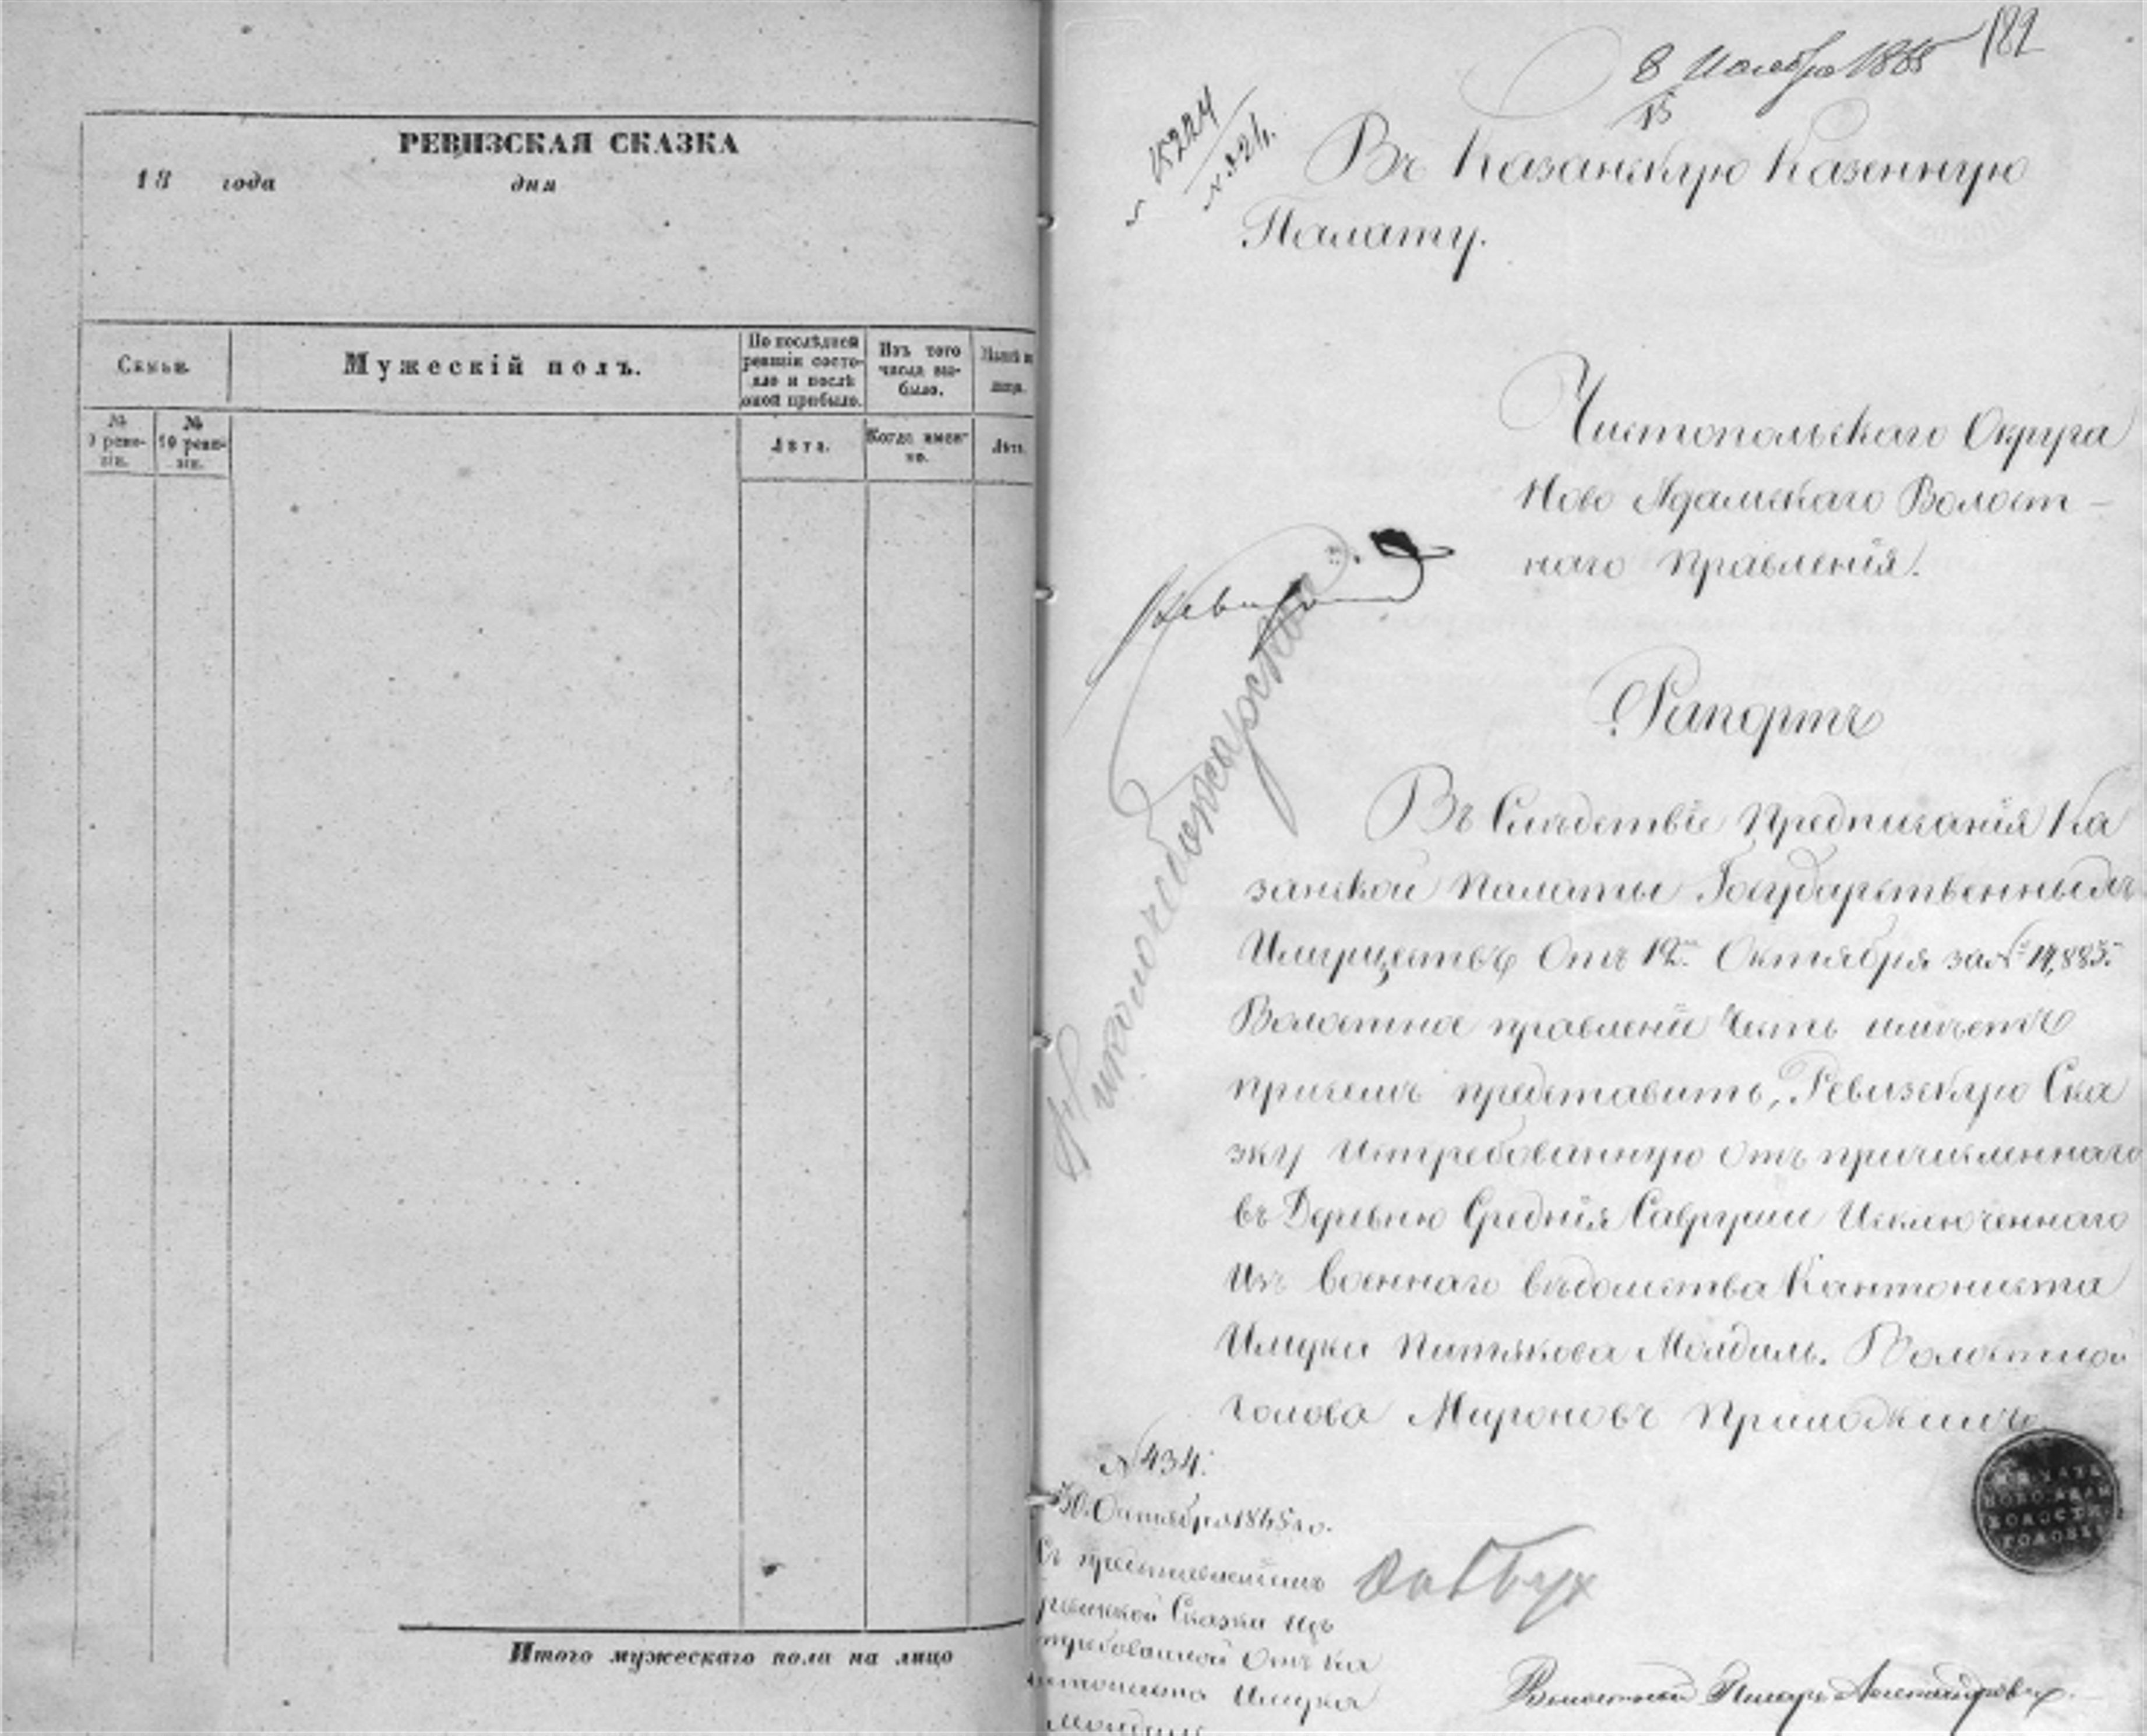 РЕВИЗСКАЯ СКАЗКА
18 года дня
Семьи.
Мужескій полъ.
По послѣдней ревизіи состояло и послѣ оной прибыло.
Изъ того числа выбыло.
№ 9 ревизіи.
№ 10 ревизіи.
Лѣта.
Когда именно.
Лѣта.
Итого мужескаго пола на лицо
8 Ноября 1865
182
15
15224
Въ Казанскую Казенную
Палату.
Чистопольскаго Округа
Ново Адамскаго Волост-
наго Правленія.
Рапортъ
Въ Слѣдствіе Предписанія Ка
занской Палаты Государственныхъ
Имуществъ Отъ 12 Октября за №
Волостное правленіе Честь имѣетъ
при семъ представить, Ревизскую Ска
зку Истребованную отъ причисленнаго
въ Деревню Средніе Савруши Исключеннаго
Изъ военнаго вѣдомства Кантониста
Волостной
голова Мироновъ
№ 434.
30 Октября 1865 го.
Съ представленіемъ
ревизской Сказки Ис
требованной Отъ Ка
нтониста
ПЕЧАТЬ
НОВО АДАМ
ВОЛОСТН
ГОЛОВЫ
Волостной Писарь Александровъ